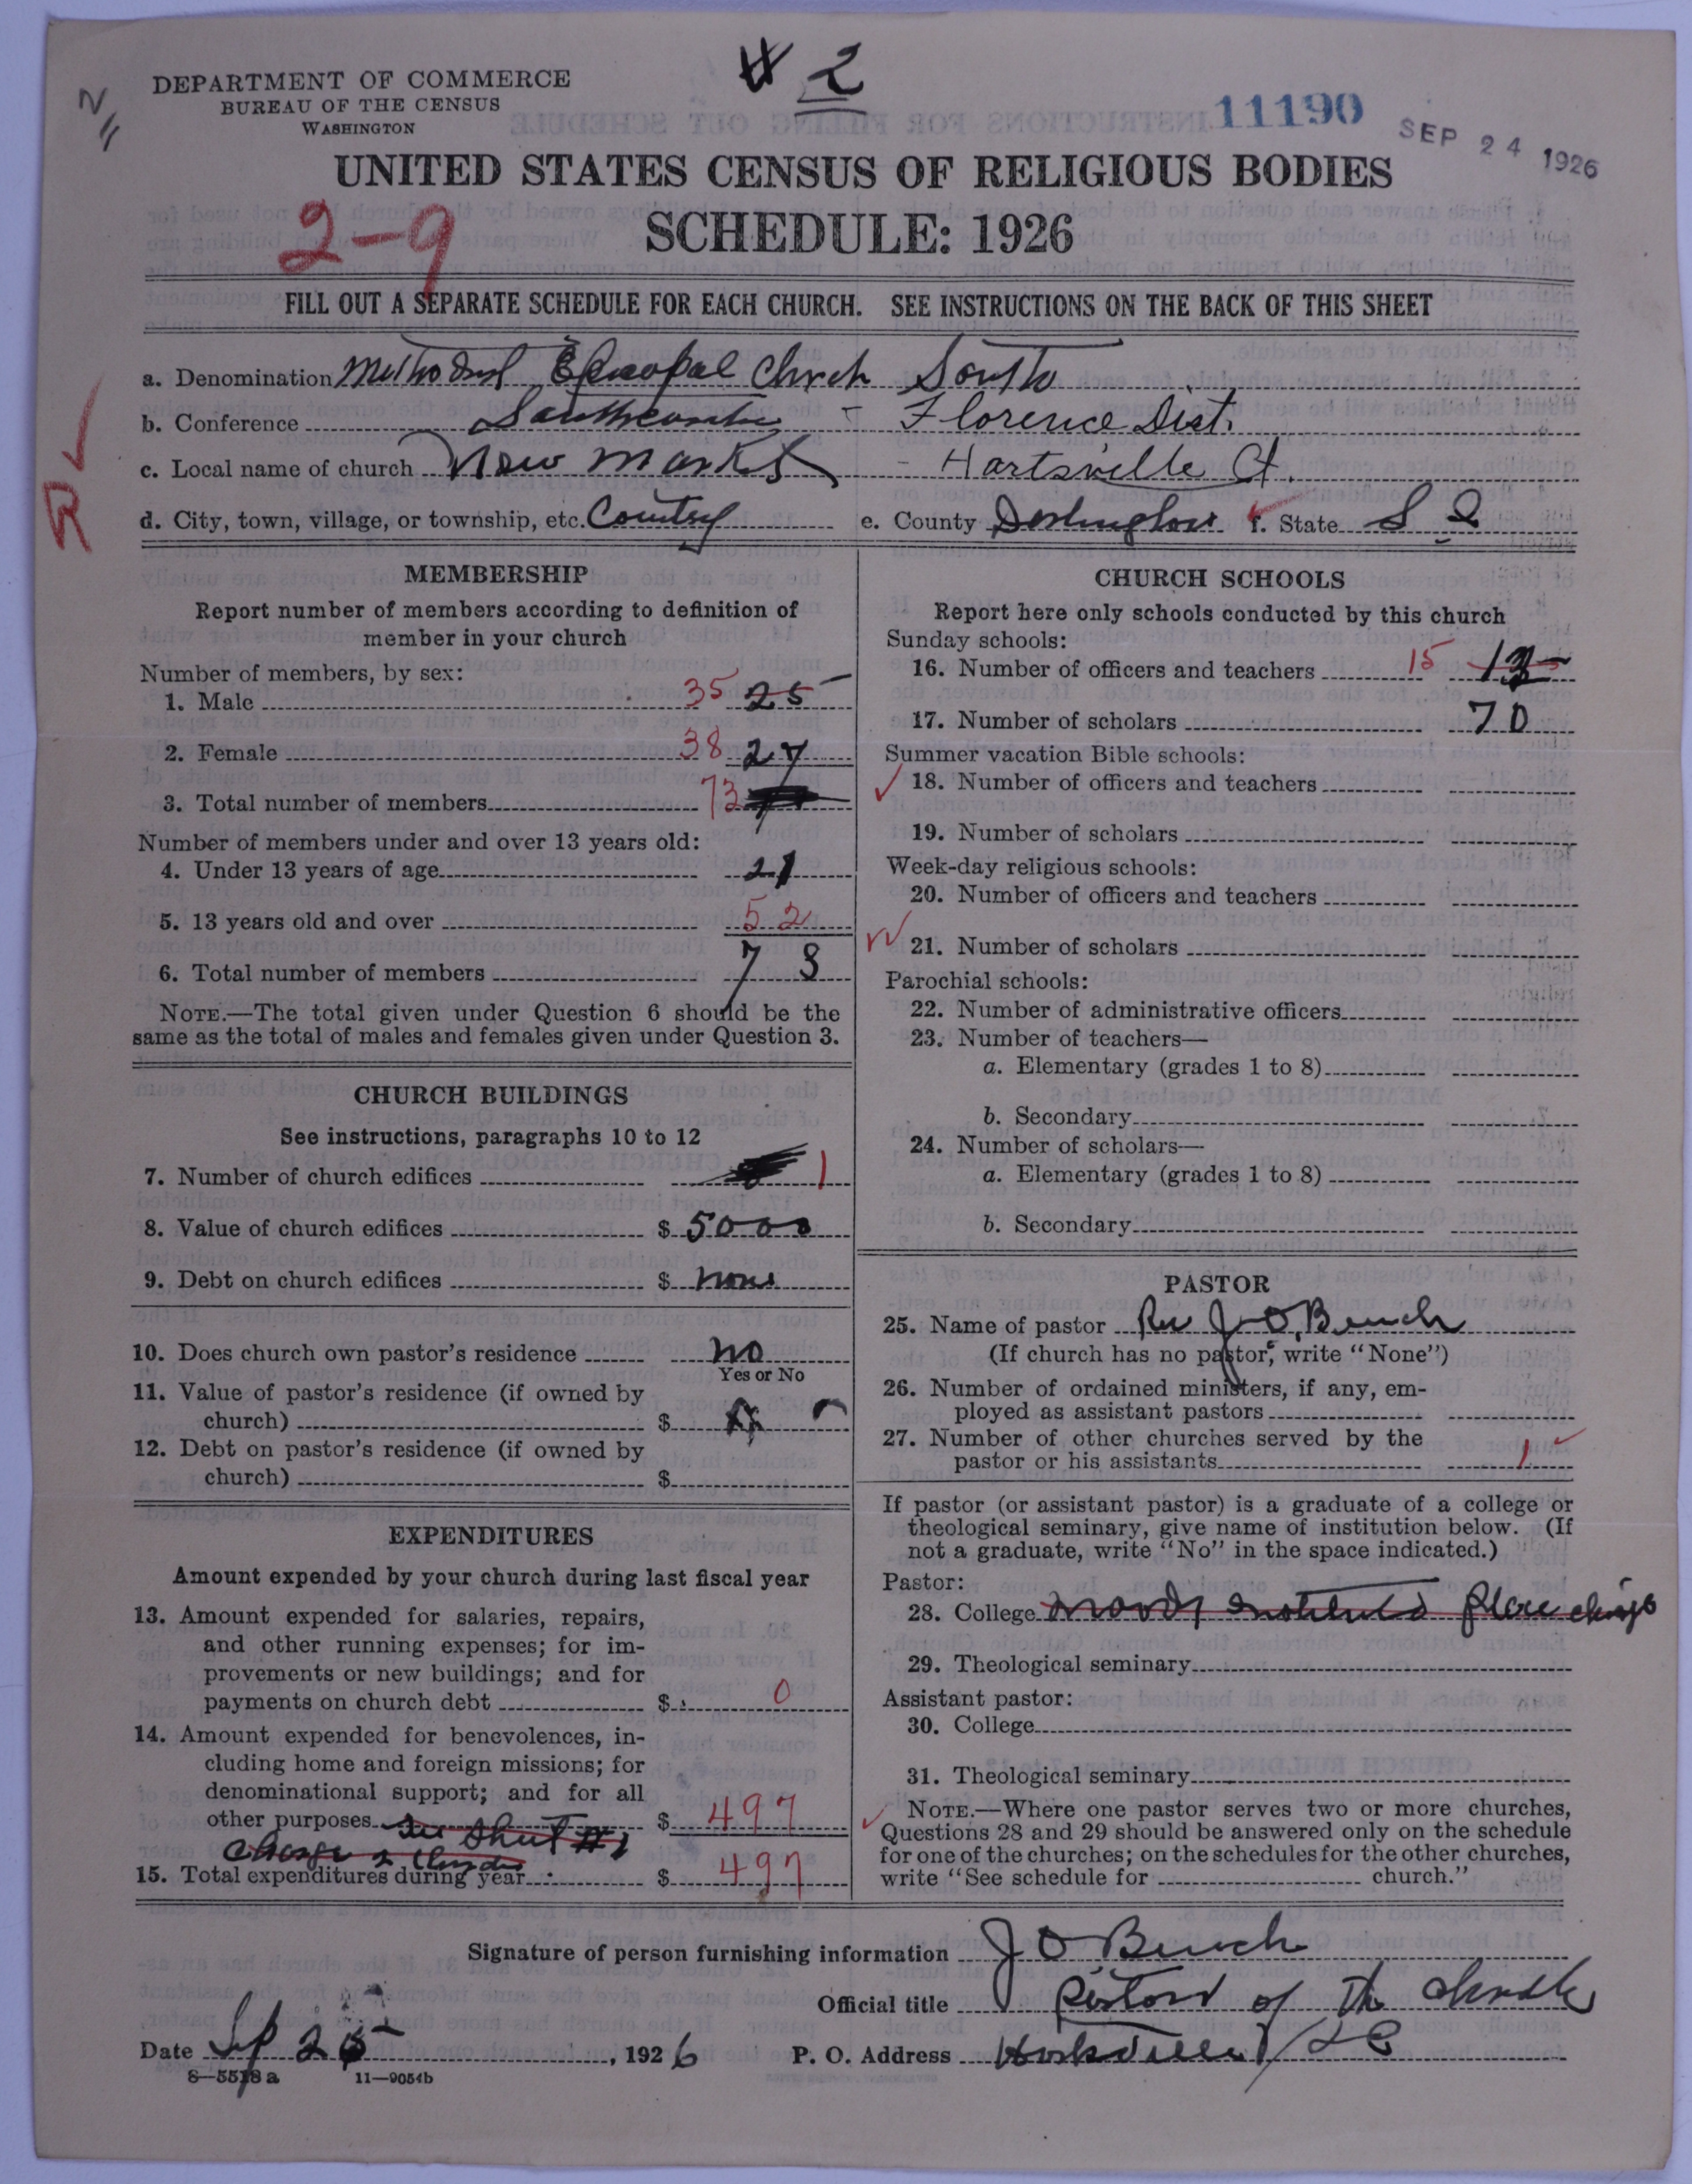 # 2
DEPARTMENT OF COMMERCE
BUREAU OF THE CENSUS
WASHINGTON
11190
SEP 24 1926
UNITED STATES CENSUS OF RELIGIOUS BODIES
2-9
SCHEDULE: 1926
FILL OUT A SEPARATE SCHEDULE FOR EACH CHURCH. SEE INSTRUCTIONS ON THE BACK OF THIS SHEET
a. Denomination Methodist Episcopal Church South
b. Conference - Florence Dist.
c. Local name of church New Market - Hartsville Ct.
R
d. City, town, village, or township, etc. Country e. County Darlington f. State S C
MEMBERSHIP
Report number of members according to definition of
member in your church
Number of members, by sex:
1. Male 35 25
2. Female 38 27
3. Total number of members 73
Number of members under and over 13 years old:
4. Under 13 years of age 21
5. 13 years old and over 52
6. Total number of members 73
NOTE.—The total given under Question 6 should be the
same as the total of males and females given under Question 3.
CHURCH BUILDINGS
See instructions, paragraphs 10 to 12
7. Number of church edifices 1
8. Value of church edifices $ 5000
9. Debt on church edifices $ none
10. Does church own pastor's residence no
Yes or No
11. Value of pastor's residence (if owned by
church) $
12. Debt on pastor's residence (if owned by
church) $
EXPENDITURES
Amount expended by your church during last fiscal year
13. Amount expended for salaries, repairs,
and other running expenses; for im-
provements or new buildings; and for
payments on church debt $ 0
14. Amount expended for benevolences, in-
cluding home and foreign missions; for
denominational support; and for all
other purposes See Sheet #1 $ 497
15. Total expenditures during year $ 497
CHURCH SCHOOLS
Report here only schools conducted by this church
Sunday schools:
16. Number of officers and teachers 15
17. Number of scholars 70
Summer vacation Bible schools:
18. Number of officers and teachers
19. Number of scholars
Week-day religious schools:
20. Number of officers and teachers
21. Number of scholars
Parochial schools:
22. Number of administrative officers
23. Number of teachers—
a. Elementary (grades 1 to 8)
b. Secondary
24. Number of scholars—
a. Elementary (grades 1 to 8)
b. Secondary
PASTOR
25. Name of pastor Rev J. O. Burch
(If church has no pastor, write "None")
26. Number of ordained ministers, if any, em-
ployed as assistant pastors
27. Number of other churches served by the
pastor or his assistants 1
If pastor (or assistant pastor) is a graduate of a college or
theological seminary, give name of institution below. (If
not a graduate, write "No" in the space indicated.)
Pastor:
28. College Moody Institute
29. Theological seminary
Assistant pastor:
30. College
31. Theological seminary
NOTE.—Where one pastor serves two or more churches,
Questions 28 and 29 should be answered only on the schedule
for one of the churches; on the schedules for the other churches,
write "See schedule for church."
Signature of person furnishing information J O Burch
Official title Pastor of the church
Date Sep 25, 1926 P. O. Address Hartsville, S C
8—5518 a 11—9054b